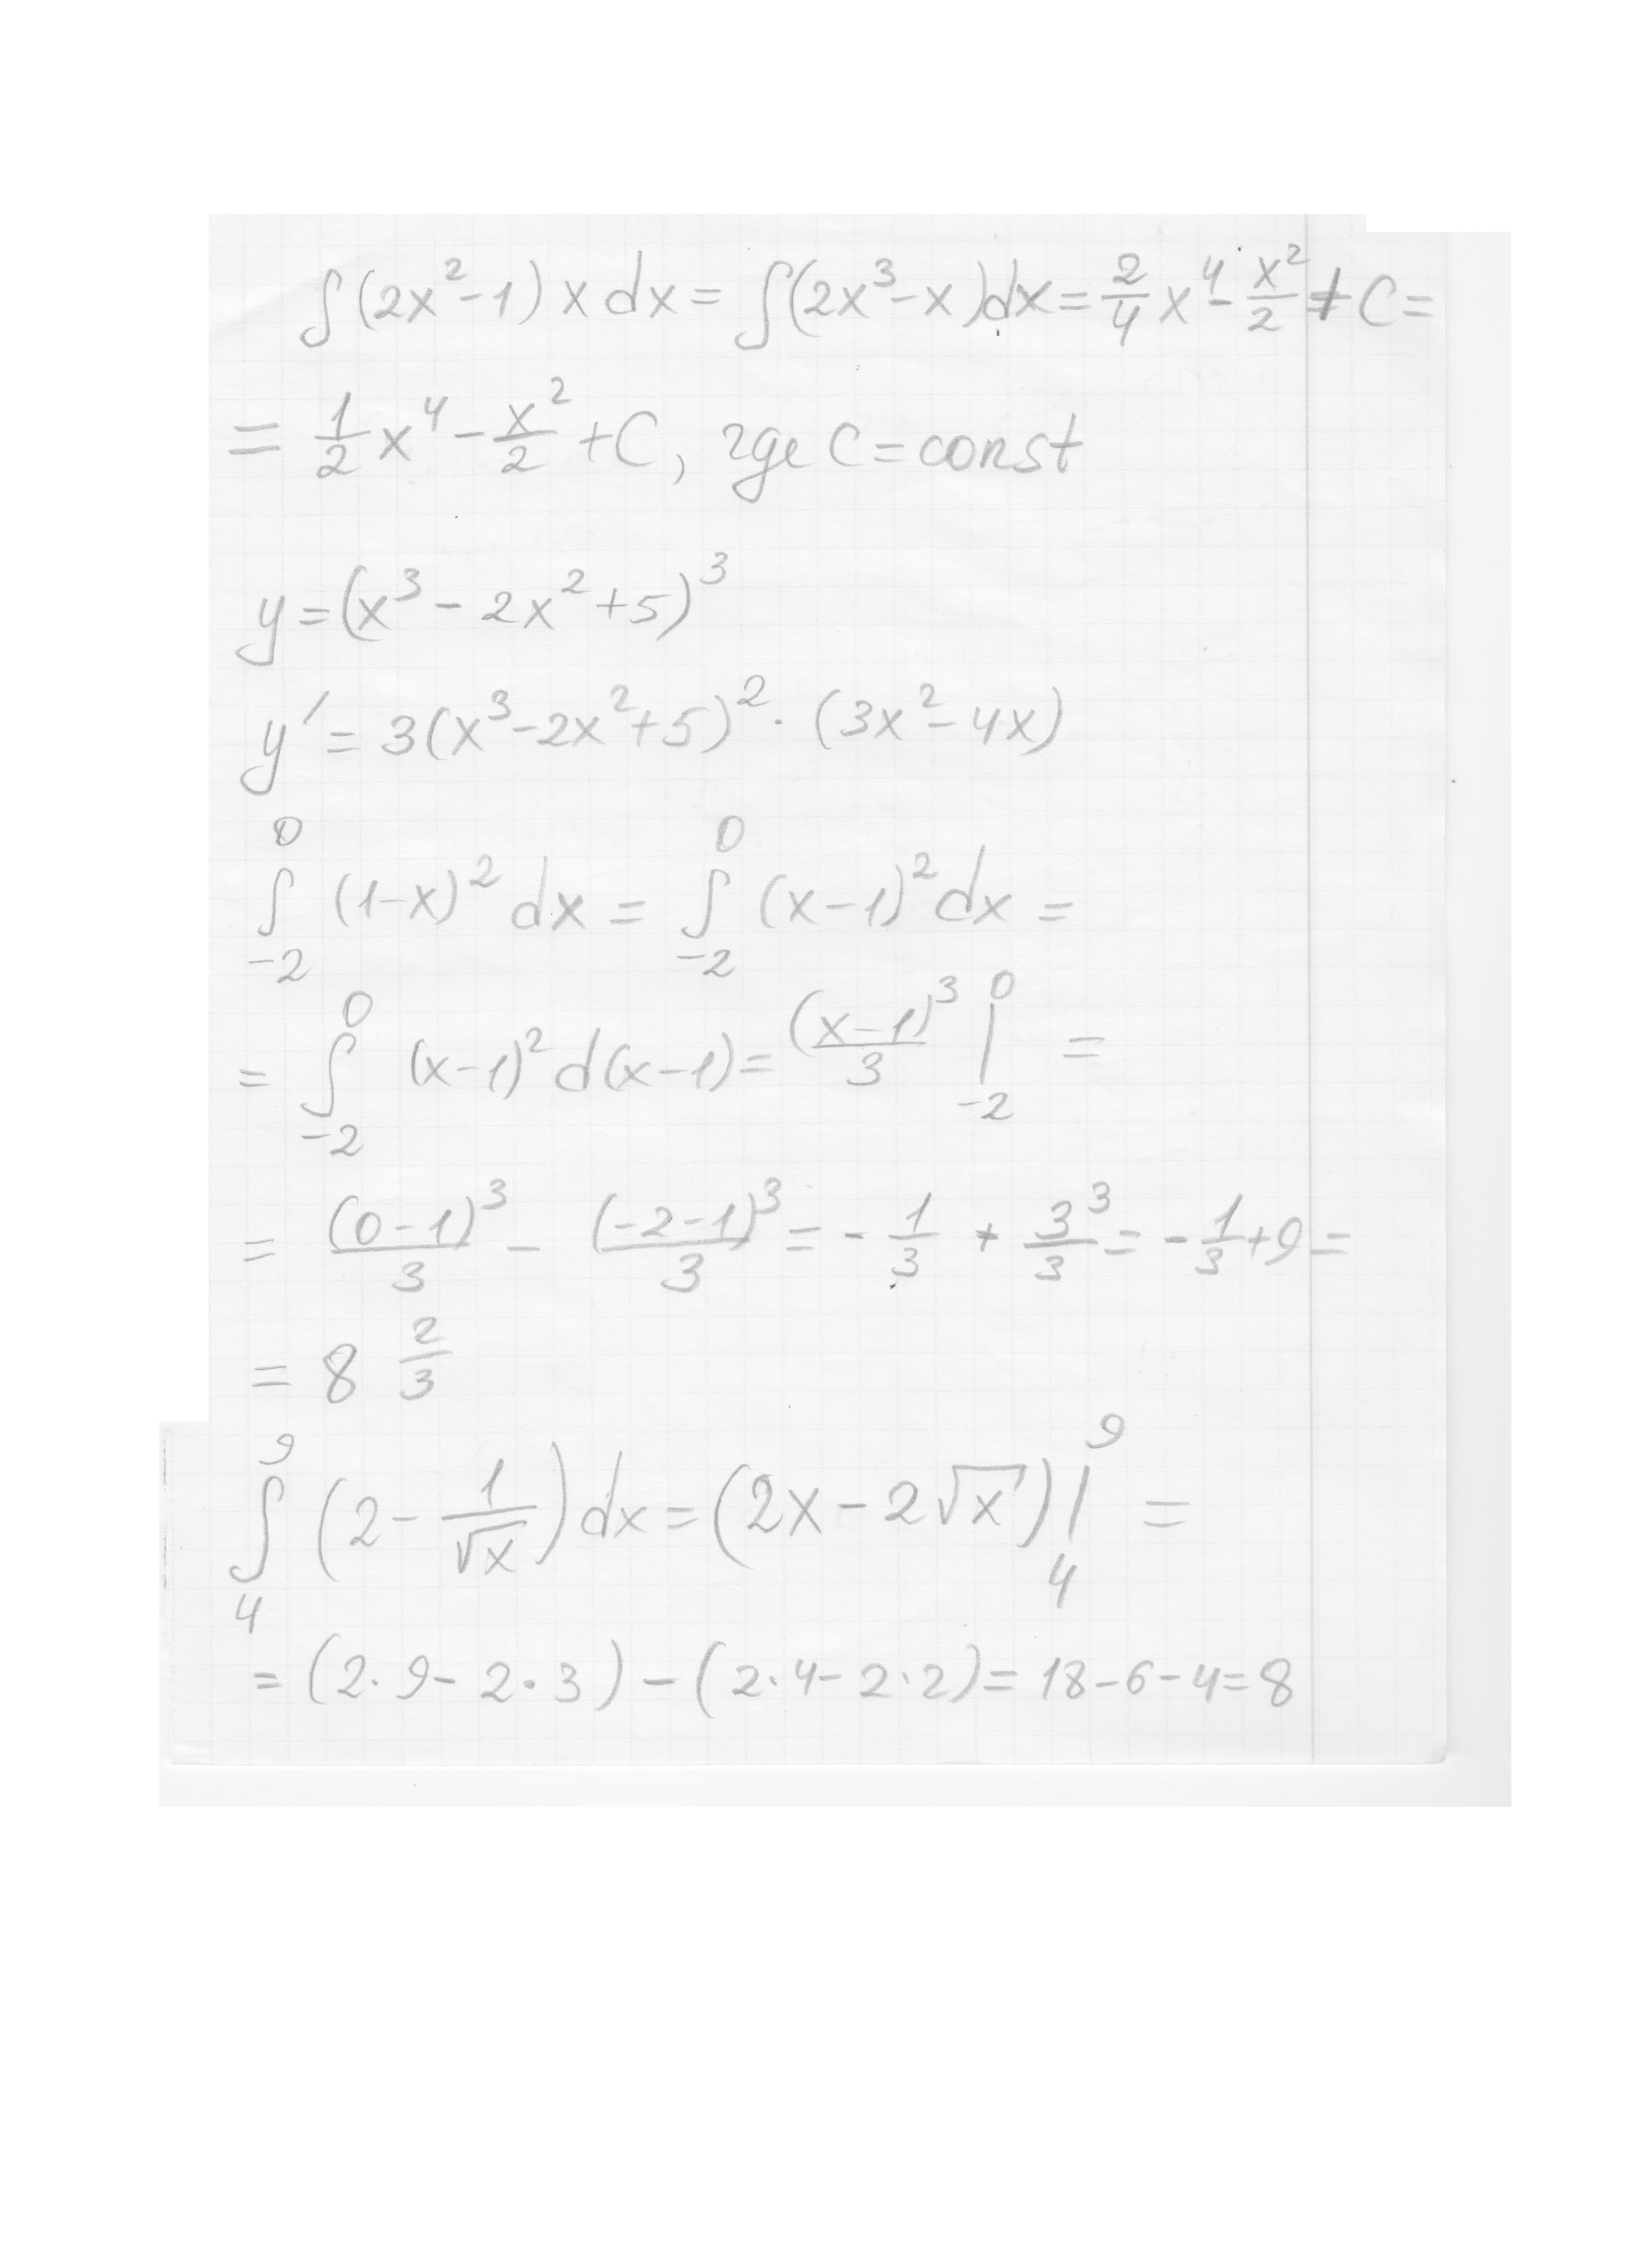 ∫(2x²-1) x dx = ∫(2x³-x)dx = 2/4 x⁴ - x²/2 + C =
= 1/2 x⁴ - x²/2 + C, где C = const
y = (x³ - 2x² + 5)³
y′ = 3(x³-2x²+5)² · (3x²-4x)
∫₋₂⁰ (1-x)² dx = ∫₋₂⁰ (x-1)² dx =
= ∫₋₂⁰ (x-1)² d(x-1) = (x-1)³/3 |₋₂⁰ =
= (0-1)³/3 - (-2-1)³/3 = - 1/3 + 3³/3 = - 1/3 + 9 =
= 8 2/3
∫₄⁹ (2 - 1/√x) dx = (2x - 2√x) |₄⁹ =
= (2·9 - 2·3) - (2·4 - 2·2) = 18-6-4 = 8